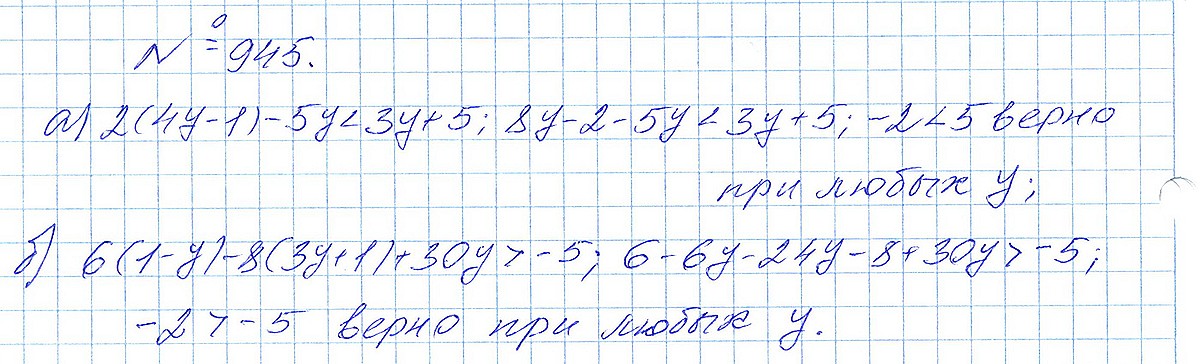 № 945.
а) 2(4y-1)-5y<3y+5; 8y-2-5y<3y+5; -2<5 верно
при любых y;
б) 6(1-y)-8(3y+1)+30y>-5; 6-6y-24y-8+30y>-5;
-2>-5 верно при любых y.